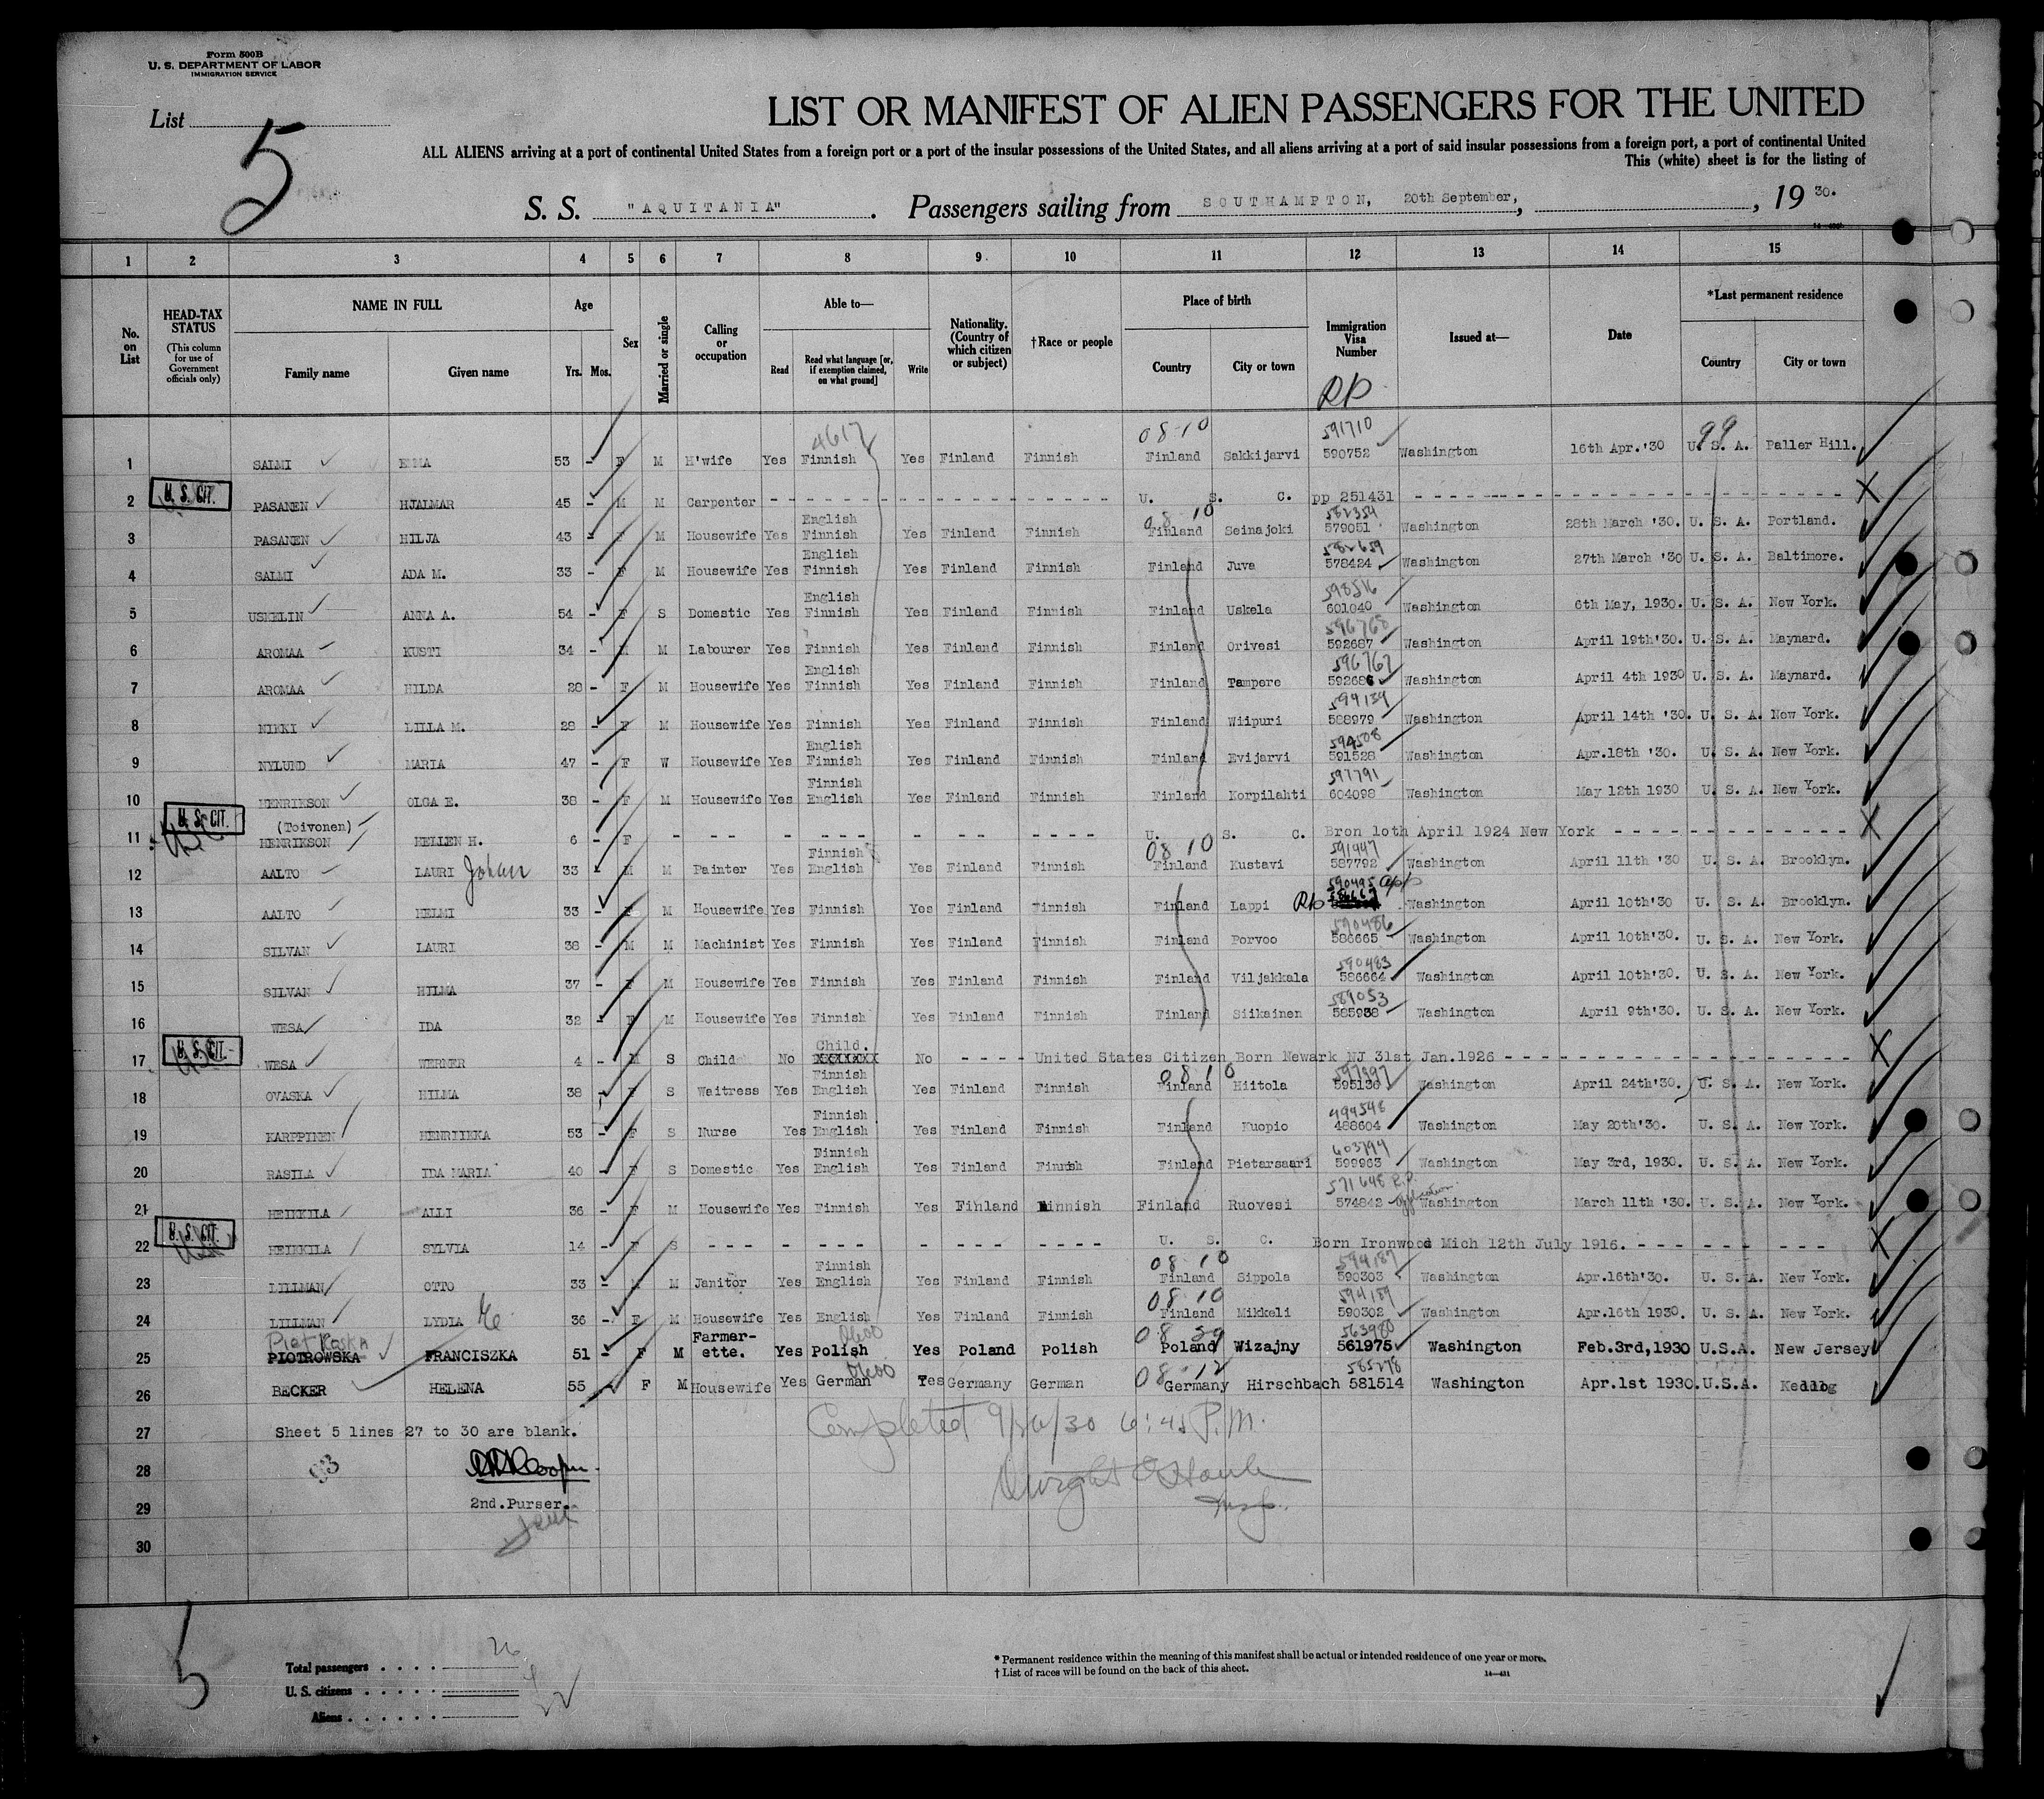 Form 500B
U. S. DEPARTMENT OF LABOR
IMMIGRATION SERVICE
List 5
LIST OR MANIFEST OF ALIEN PASSENGERS FOR THE UNITED
ALL ALIENS arriving at a port of continental United States from a foreign port or a port of the insular possessions of the United States, and all aliens arriving at a port of said insular possessions from a foreign port, a port of continental United
This (white) sheet is for the listing of
S. S. "AQUITANIA" . Passengers sailing from SOUTHAMPTON, 20th September, , 19 30.
1 2 3 4 5 6 7 8 9 10 11 12 13 14 15
No. on List
HEAD-TAX STATUS
(This column for use of Government officials only)
NAME IN FULL
Family name Given name
Age
Yrs. Mos.
Sex
Married or single
Calling or occupation
Able to—
Read Read what language [or, if exemption claimed, on what ground] Write
Nationality. (Country of which citizen or subject)
†Race or people
Place of birth
Country City or town
Immigration Visa Number
Issued at—
Date
*Last permanent residence
Country City or town
4617 08-10 591710 99
1 SALMI EMMA 53 - F M H'wife Yes Finnish Yes Finland Finnish Finland Sakkijarvi 590752 Washington 16th Apr.'30 U. S. A. Paller Hill.
U. S. CIT.
2 PASANEN HJALMAR 45 - M M Carpenter U. S. C. pp 251431
English 08 10 582354
3 PASANEN HILJA 43 - F M Housewife Yes Finnish Yes Finland Finnish Finland Seinajoki 579051 Washington 28th March '30. U. S. A. Portland.
English 582659
4 SALMI ADA M. 33 - F M Housewife Yes Finnish Yes Finland Finnish Finland Juva 578424 Washington 27th March '30 U. S. A. Baltimore.
English 598516
5 USKELIN ANNA A. 54 - F S Domestic Yes Finnish Yes Finland Finnish Finland Uskela 601040 Washington 6th May, 1930. U. S. A. New York.
596768
6 AROMAA KUSTI 34 - M M Labourer Yes Finnish Yes Finland Finnish Finland Orivesi 592687 Washington April 19th'30. U. S. A. Maynard.
English 596767
7 AROMAA HILDA 28 - F M Housewife Yes Finnish Yes Finland Finnish Finland Tampere 592686 Washington April 4th 1930 U. S. A. Maynard.
594139
8 NIKKI LILLA M. 28 - F M Housewife Yes Finnish Yes Finland Finnish Finland Wiipuri 588979 Washington April 14th '30. U. S. A. New York.
English 594508
9 NYLUND MARIA 47 - F W Housewife Yes Finnish Yes Finland Finnish Finland Evijarvi 591528 Washington Apr.18th '30. U. S. A. New York.
Finnish 597791
10 HENRIKSON OLGA E. 38 - F M Housewife Yes English Yes Finland Finnish Finland Korpilahti 604098 Washington May 12th 1930 U. S. A. New York.
U. S. CIT. (Toivonen)
11 HENRIKSON HELLEN H. 6 - F U. S. C. Bron 1oth April 1924 New York
Finnish 08 10 591947
12 AALTO LAURI Johan 33 - M M Painter Yes English Yes Finland Finnish Finland Kustavi 587792 Washington April 11th '30 U. S. A. Brooklyn.
590495
13 AALTO HELMI 33 - F M Housewife Yes Finnish Yes Finland Finnish Finland Lappi Washington April 10th'30 U. S. A. Brooklyn.
590486
14 SILVAN LAURI 38 - M M Machinist Yes Finnish Yes Finland Finnish Finland Porvoo 586665 Washington April 10th'30. U. S. A. New York.
590483
15 SILVAN HILMA 37 - F M Housewife Yes Finnish Yes Finland Finnish Finland Viljakkala 586664 Washington April 10th'30. U. S. A. New York.
589053
16 WESA IDA 32 - F M Housewife Yes Finnish Yes Finland Finnish Finland Siikainen 585938 Washington April 9th'30. U. S. A. New York.
U. S. CIT. Child.
17 WESA WERNER 4 - M S Child No XXXXXXX No United States Citizen Born Newark NJ 31st Jan.1926
Finnish 08 10 597897
18 OVASKA HILMA 38 - F S Waitress Yes English Yes Finland Finnish Finland Hiitola 595130 Washington April 24th'30. U. S. A. New York.
Finnish 494548
19 KARPPINEN HENRIIKKA 53 - F S Nurse Yes English Yes Finland Finnish Finland Kuopio 488604 Washington May 20th'30. U. S. A. New York.
Finnish 603794
20 RASILA IDA MARIA 40 - F S Domestic Yes English Yes Finland Finnish Finland Pietarsaari 599963 Washington May 3rd, 1930. U. S. A. New York.
571648 R.P. application
21 HEIKKILA ALLI 36 - F M Housewife Yes Finnish Yes Finland Finnish Finland Ruovesi 574842 Washington March 11th '30. U. S. A. New York.
U. S. CIT.
22 HEIKKILA SYLVIA 14 - F S U. S. C. Born Ironwood Mich 12th July 1916.
Finnish 08 10 594187
23 LILLMAN OTTO 33 - M M Janitor Yes English Yes Finland Finnish Finland Sippola 590303 Washington Apr.16th'30. U. S. A. New York.
08 10 594189
24 LILLMAN LYDIA E. 36 - F M Housewife Yes English Yes Finland Finnish Finland Mikkeli 590302 Washington Apr.16th 1930. U. S. A. New York.
Farmer- 0600 08 39 563980
25 PIOTROWSKA FRANCISZKA 51 - F M ette. Yes Polish Yes Poland Polish Poland Wizajny 561975 Washington Feb.3rd,1930 U.S.A. New Jersey
0600 08-12 585278
26 BECKER HELENA 55 F M Housewife Yes German Yes Germany German Germany Hirschbach 581514 Washington Apr.1st 1930. U.S.A.
Completed 9/26/30 6:45 P.M.
27 Sheet 5 lines 27 to 30 are blank.
28
29 2nd.Purser.
Insp.
30
5
Total passengers . . . . 26
U. S. citizens . . . . . 4
Aliens . . . . . . 22
* Permanent residence within the meaning of this manifest shall be actual or intended residence of one year or more.
† List of races will be found on the back of this sheet.
14—431